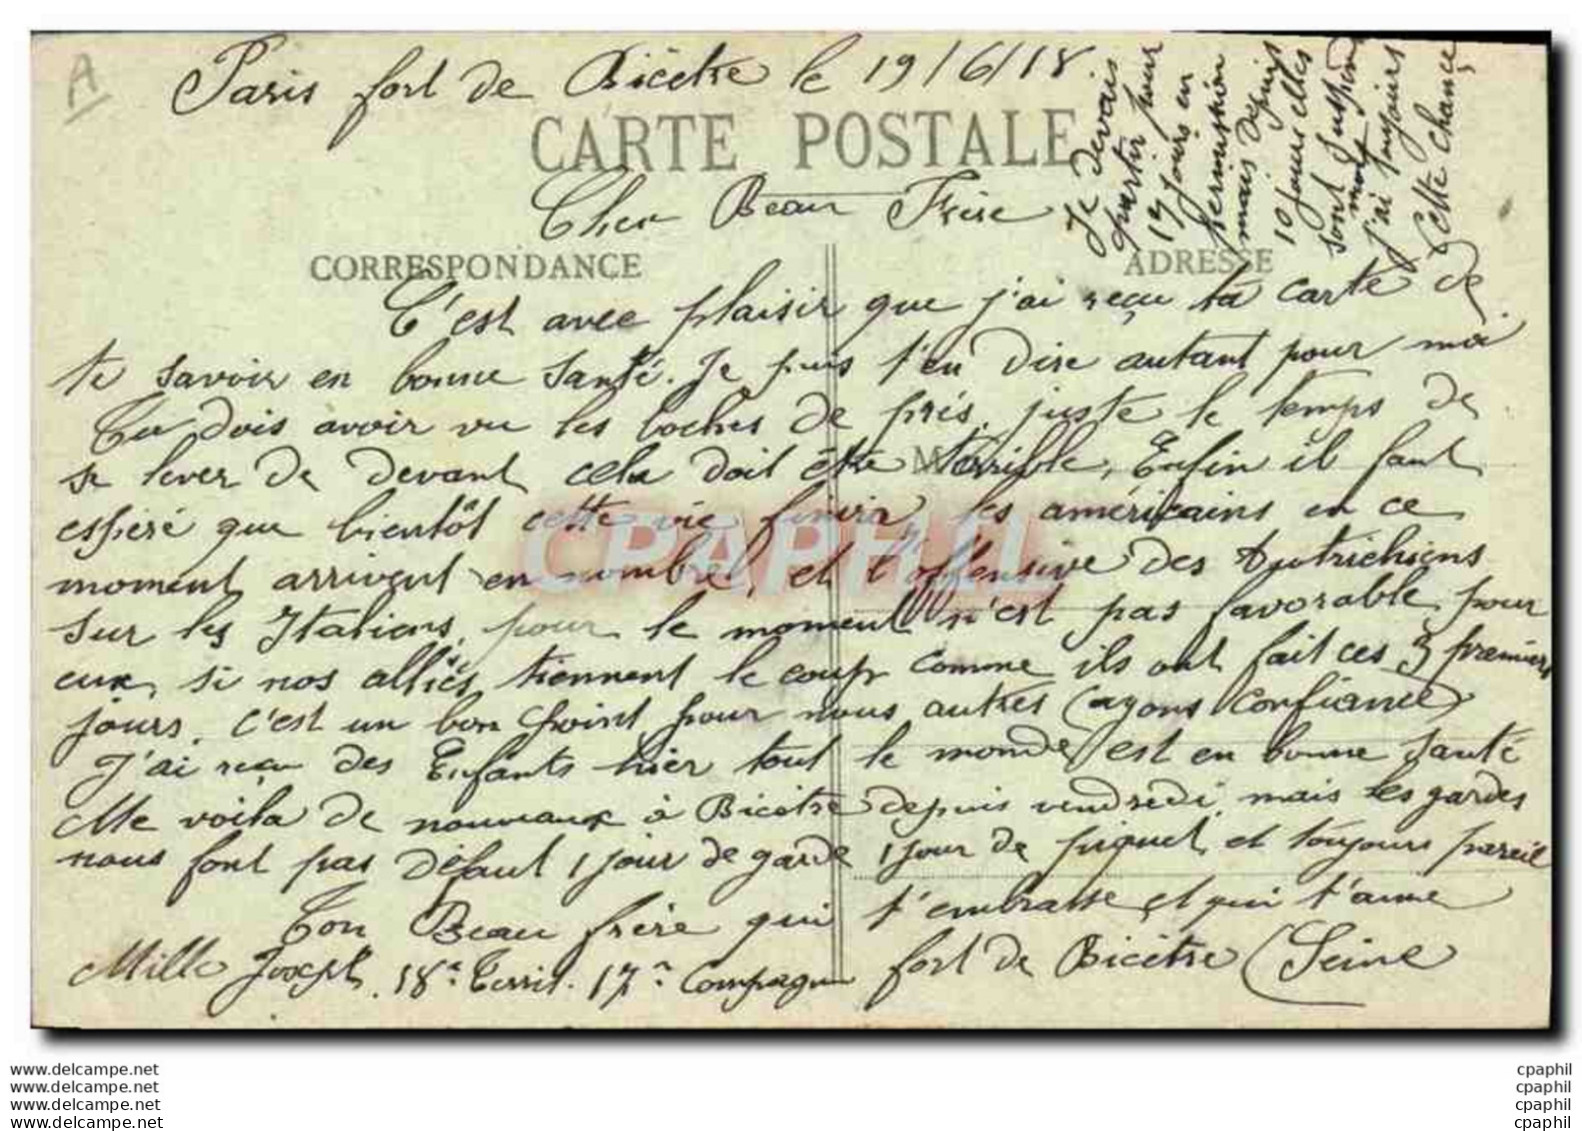 A
Paris fort de Bicêtre le 19/6/18
CARTE POSTALE
Cher Beau Frère
CORRESPONDANCE
ADRESSE
C'est avec plaisir que j'ai reçu ta carte de
te savoir en bonne santé. Je puis t'en dire autant pour moi
Tu dois avoir vu les boches de près, juste le temps de
se lever de devant cela doit être terrible, Enfin il faut
espéré que bientôt cette vie finira, les américains en ce
moment arrivent en nombre, et l'offensive des Autrichiens
sur les Italiens, pour le moment n'est pas favorable pour
eux, si nos alliés tiennent le coup comme ils ont fait ces 3 premiers
jours, c'est un bon point pour nous autres (ayons confiance)
J'ai reçu des Enfants hier tout le monde est en bonne santé
Me voila de nouveaux à Bicêtre depuis vendredi, mais les gardes
nous font pas défaut 1 jour de garde 1 jour de piquet et toujours pareil
Ton Beau frère qui t'embrasse et qui t'aime
Mille Joseph. 18e Territ. 17e Compagnie fort de Bicêtre (Seine
Je devais
partir pour
17 jours en
permission
mais depuis
10 jours elles
sont suspendu
moi
j'ai toujours
cette chance
CPAPHIL
www.delcampe.net
www.delcampe.net
www.delcampe.net
www.delcampe.net
cpaphil
cpaphil
cpaphil
cpaphil